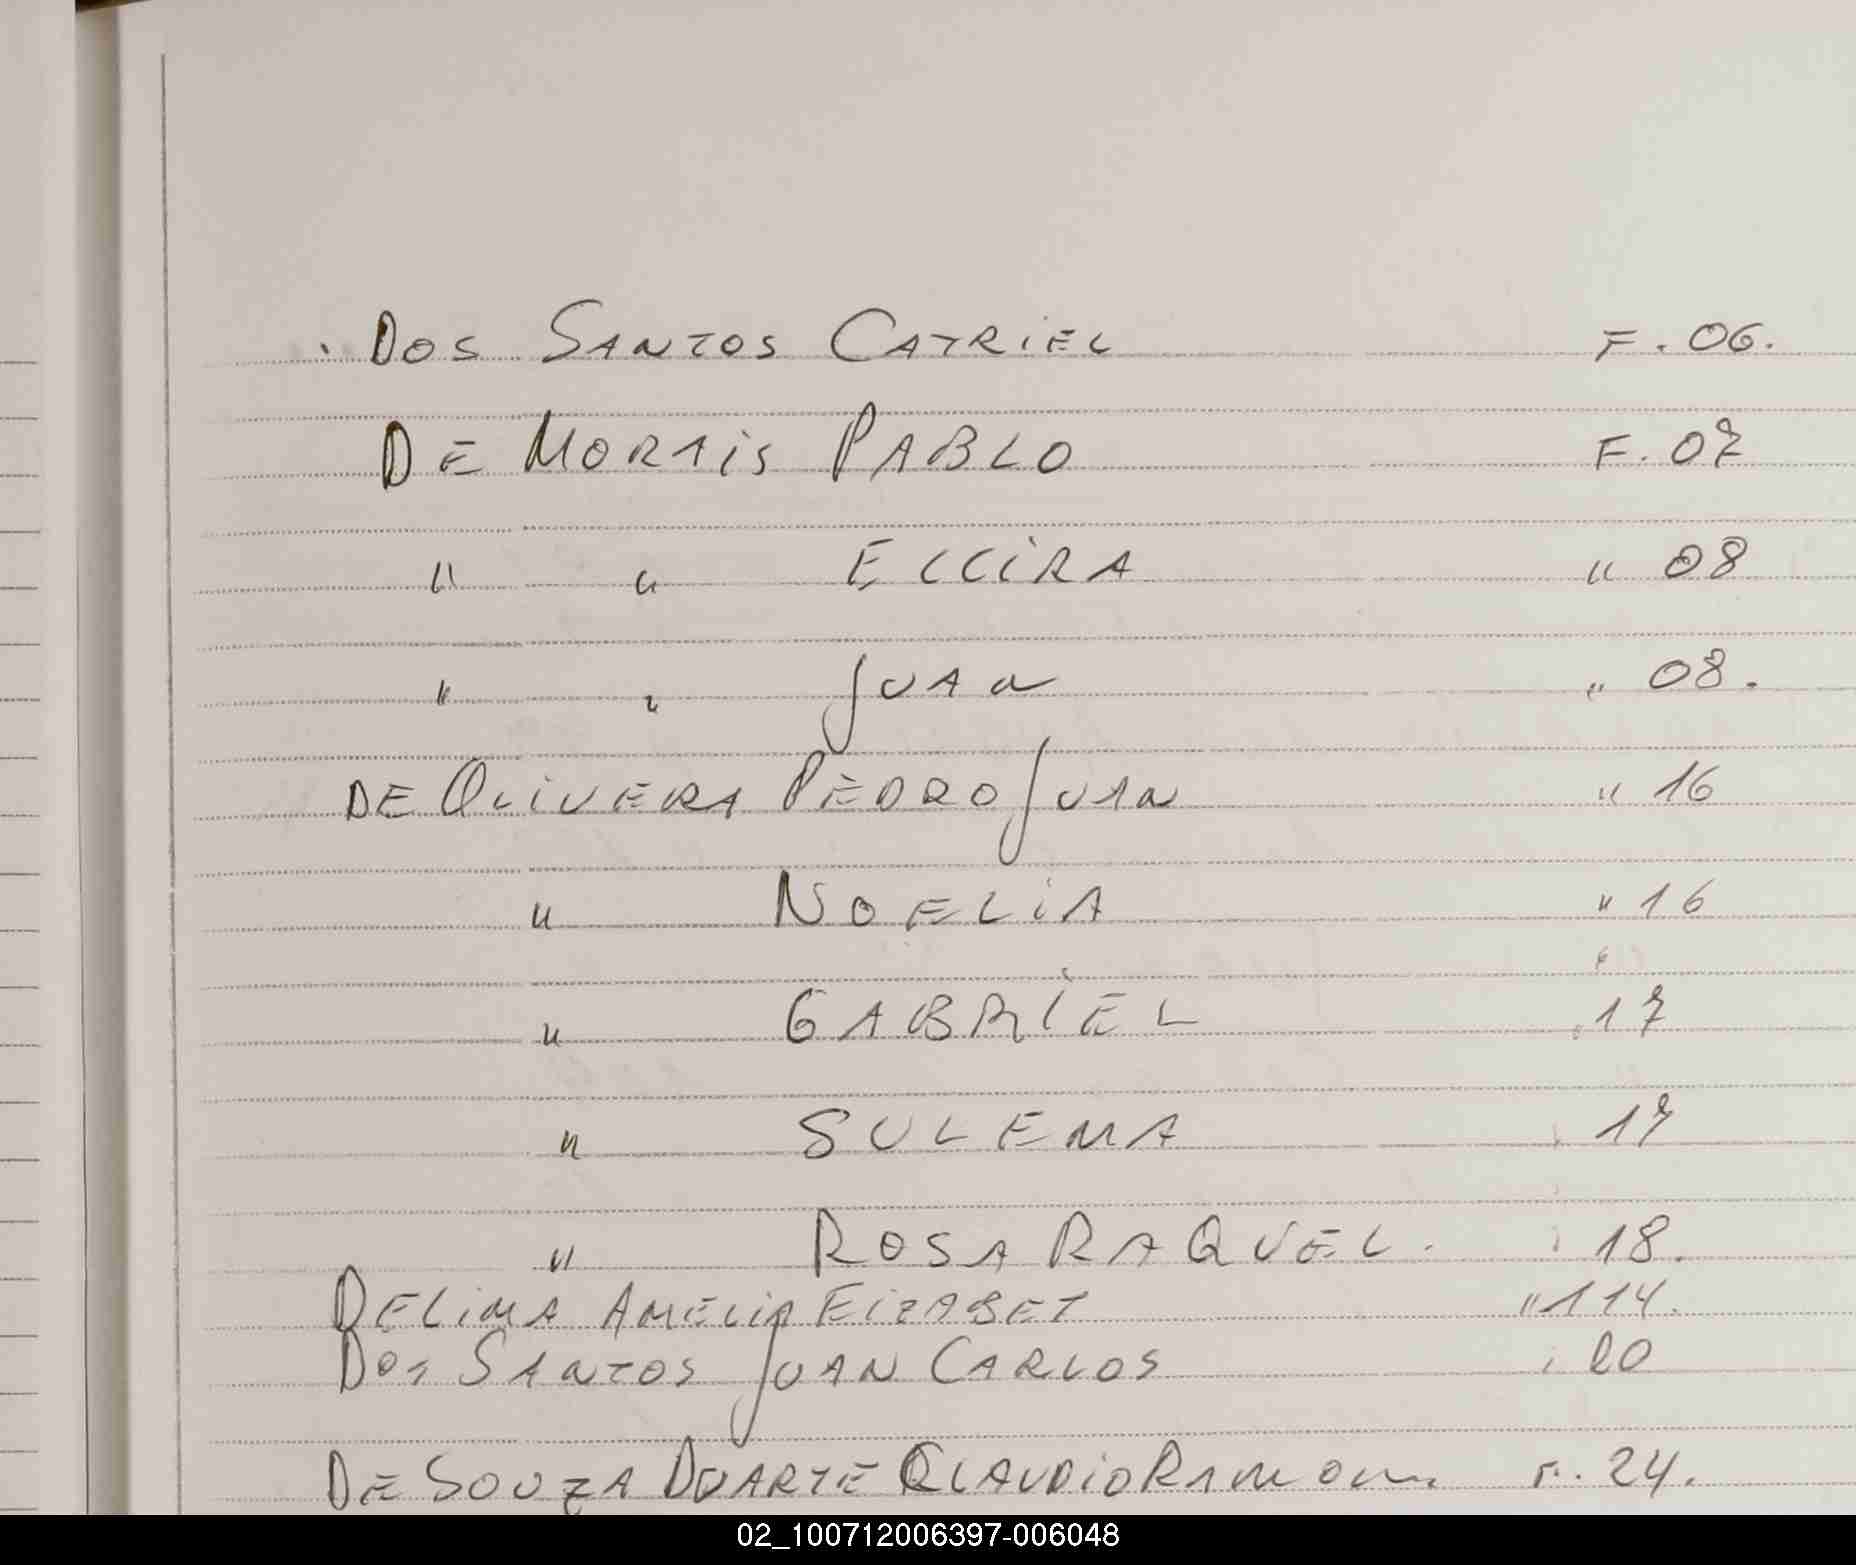 DOS SANTOS CATRIEL F. 06.
DE MORAIS PABLO F. 07
" " ELCIRA " 08
" " JUAN " 08.
DE OLIVERA PEDRO JUAN " 16
" NOELIA " 16
" GABRIEL " 17
" SULEMA 17
" ROSA RAQUEL. 18.
DELIMA AMELIA ELIZABET " 114.
DOS SANTOS JUAN CARLOS " 20
DE SOUZA DUARTE CLAUDIO RAMON. F. 24.
02_100712006397-006048